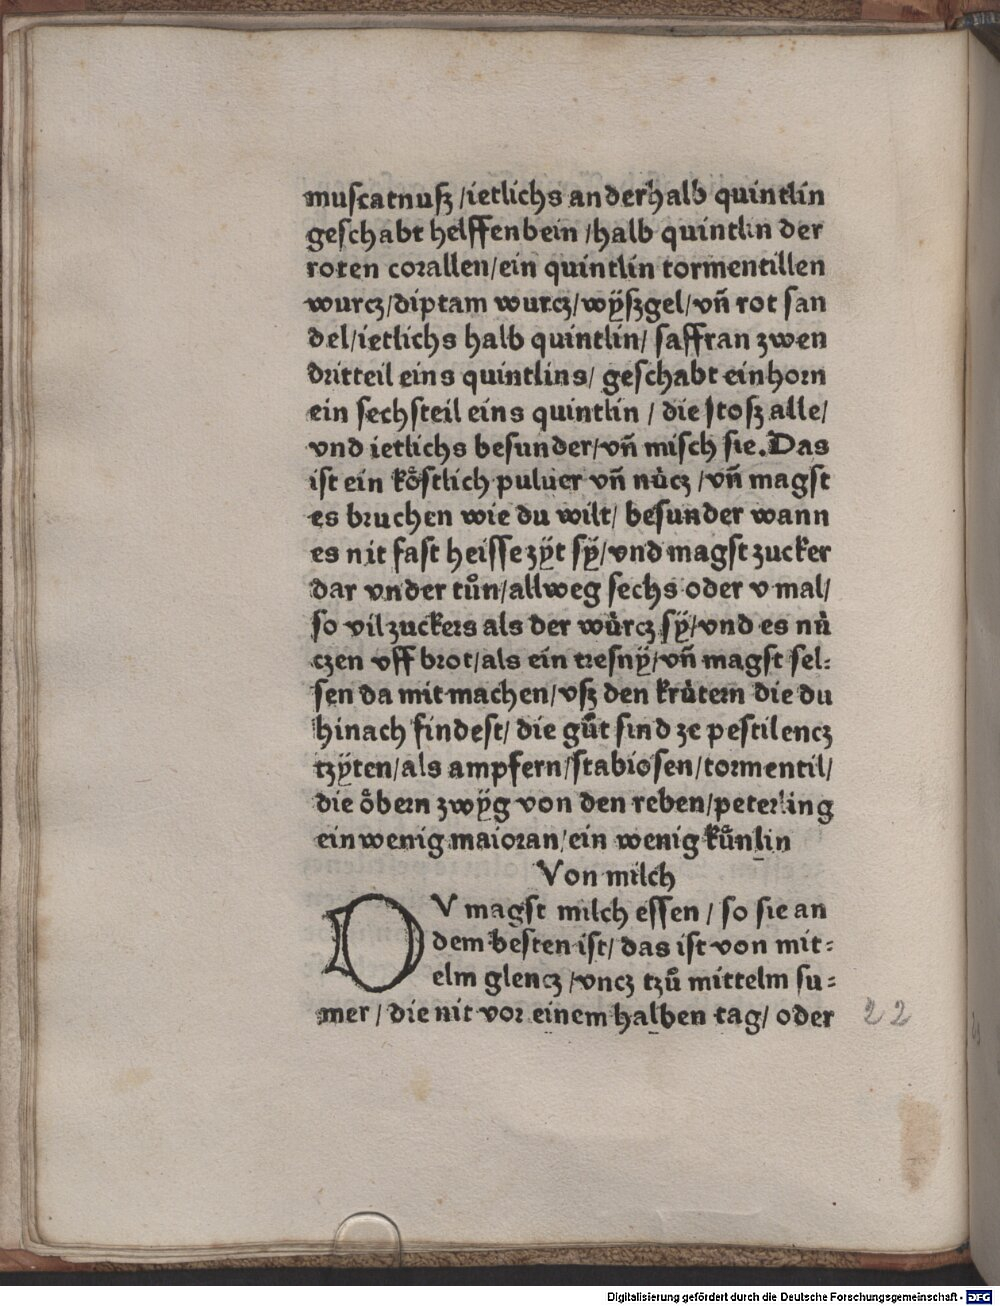 muscatnuß /ietlichs anderhalb quintlin
geschabt helffenbein /halb quintlin der
roten corallen/ein quintlin tormentillen
wurcz/diptam wurcz/wÿßgel/vn̄ rot san
del/ietlichs halb quintlin/ saffran zwen
dritteil eins quintlins/ geschabt einhorn
ein sechsteil eins quintlin / die stoß alle/
vnd ietlichs besunder/vn̄ misch sie.Das
ist ein kostlich puluer vn̄ nücz /vn̄ magst
es bruchen wie du wilt/ besunder wann
es nit fast heisse zÿt sÿ/vnd magst zucker
dar vnder tůn/allweg sechs oder v mal/
so vil zuckers als der würcz sÿ/vnd es nü
czen vff brot/als ein tresnÿ/vn̄ magst sel⸗
sen da mit machen/vß den krütern die du
hinach findest/ die gůt sind ze pestilencz
tzÿten/als ampfern/stabiosen/tormentil/
die öbern zwÿg von den reben/peterling
ein wenig maioran/ein wenig künlin
Von milch
DV magst milch essen / so sie an
dem besten ist/ das ist von mit⸗
elm glencz /vncz tzů mittelm su⸗
mer / die nit vor einem halben tag/ oder
22
Digitalisierung gefördert durch die Deutsche Forschungsgemeinschaft - DFG